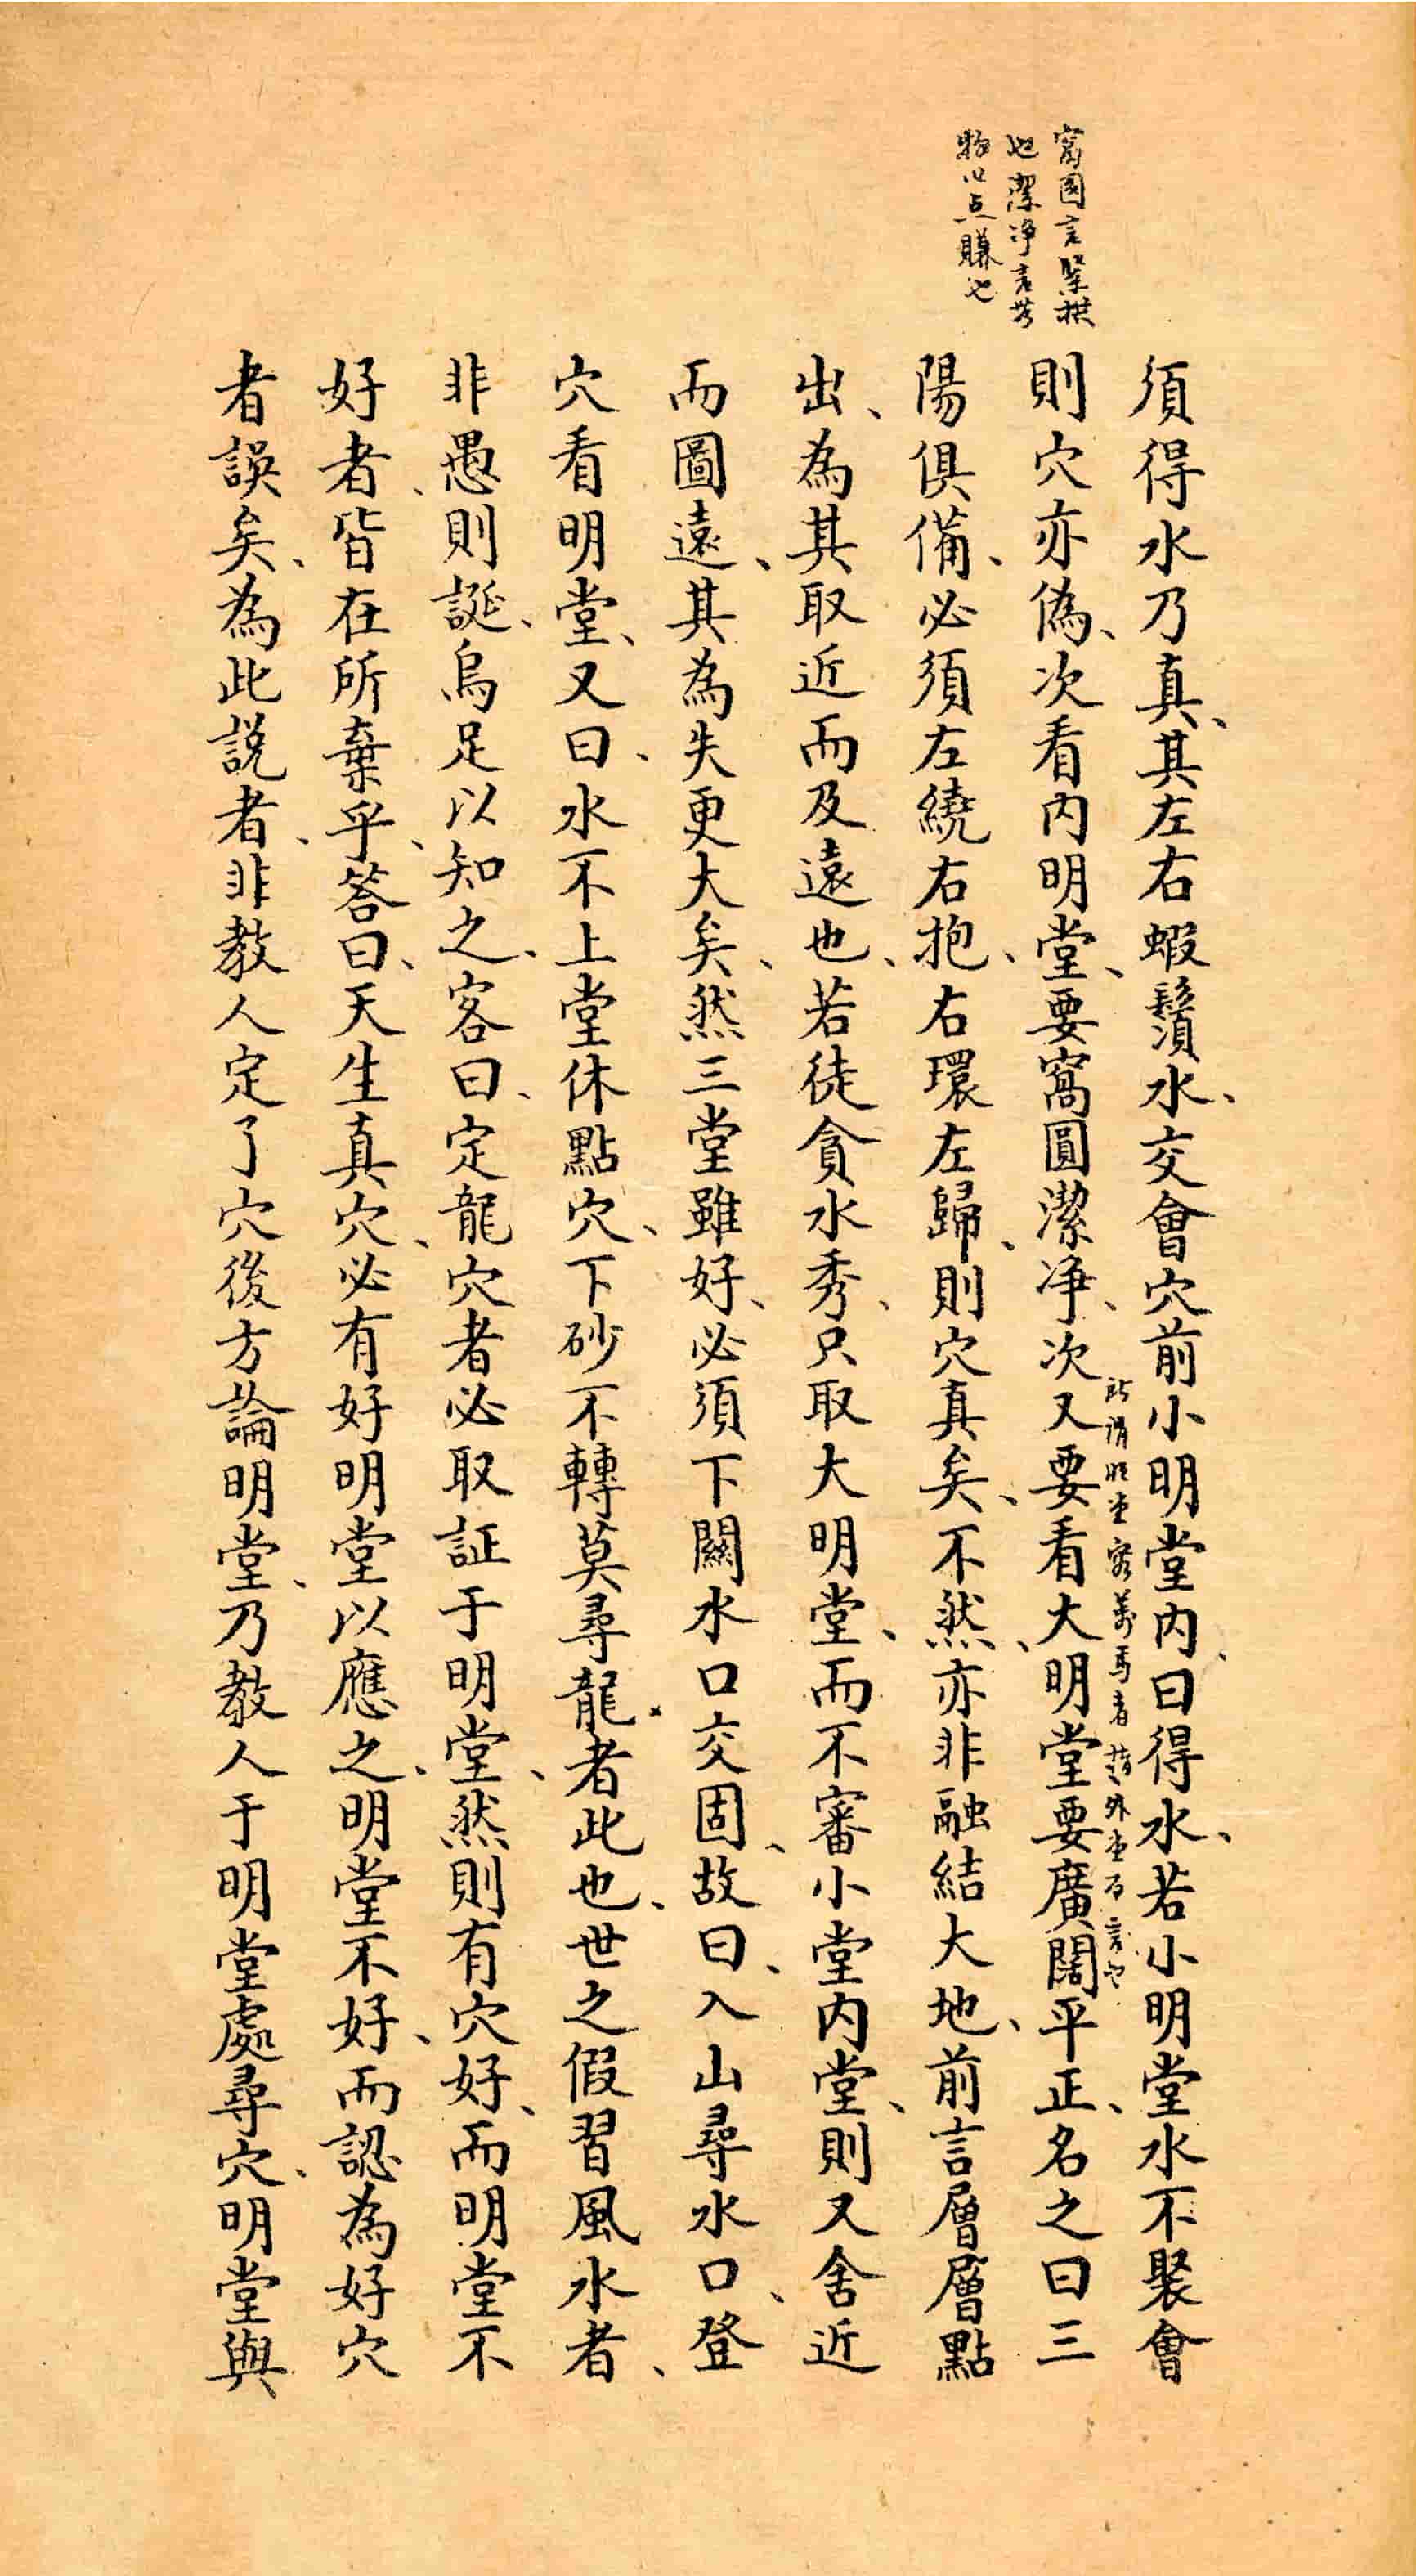 窩圓言緊拱
也潔淨言
物以点賺也
須得水乃真、其左右蝦鬚水、交會穴前小明堂內、曰得水、若小明堂水不聚會
所謂明堂容萬馬者指外堂而言也
則穴亦偽、次看內明堂、要窩圓潔净、次又要看大明堂要廣闊平正、名之曰三
陽俱備、必須左繞右抱、右環左歸、則穴真矣、不然、亦非融結大地、前言層層點
出、為其取近而及遠也、若徒貪水秀、只取大明堂、而不審小堂內堂、則又舍近
而圖遠、其為失更大矣、然三堂雖好、必須下關水口交固、故曰、入山尋水口、登
穴看明堂、又曰、水不上堂休點穴、下砂不轉莫尋龍、者此也、世之假習風水者、
非愚則誕、烏足以知之、客曰、定龍穴者必取証于明堂、然則有穴好、而明堂不
好者、皆在所棄乎、答曰、天生真穴、必有好明堂以應之、明堂不好、而認為好穴
者誤矣、為此説者、非教人定了穴後方論明堂、乃教人于明堂處尋穴、明堂與